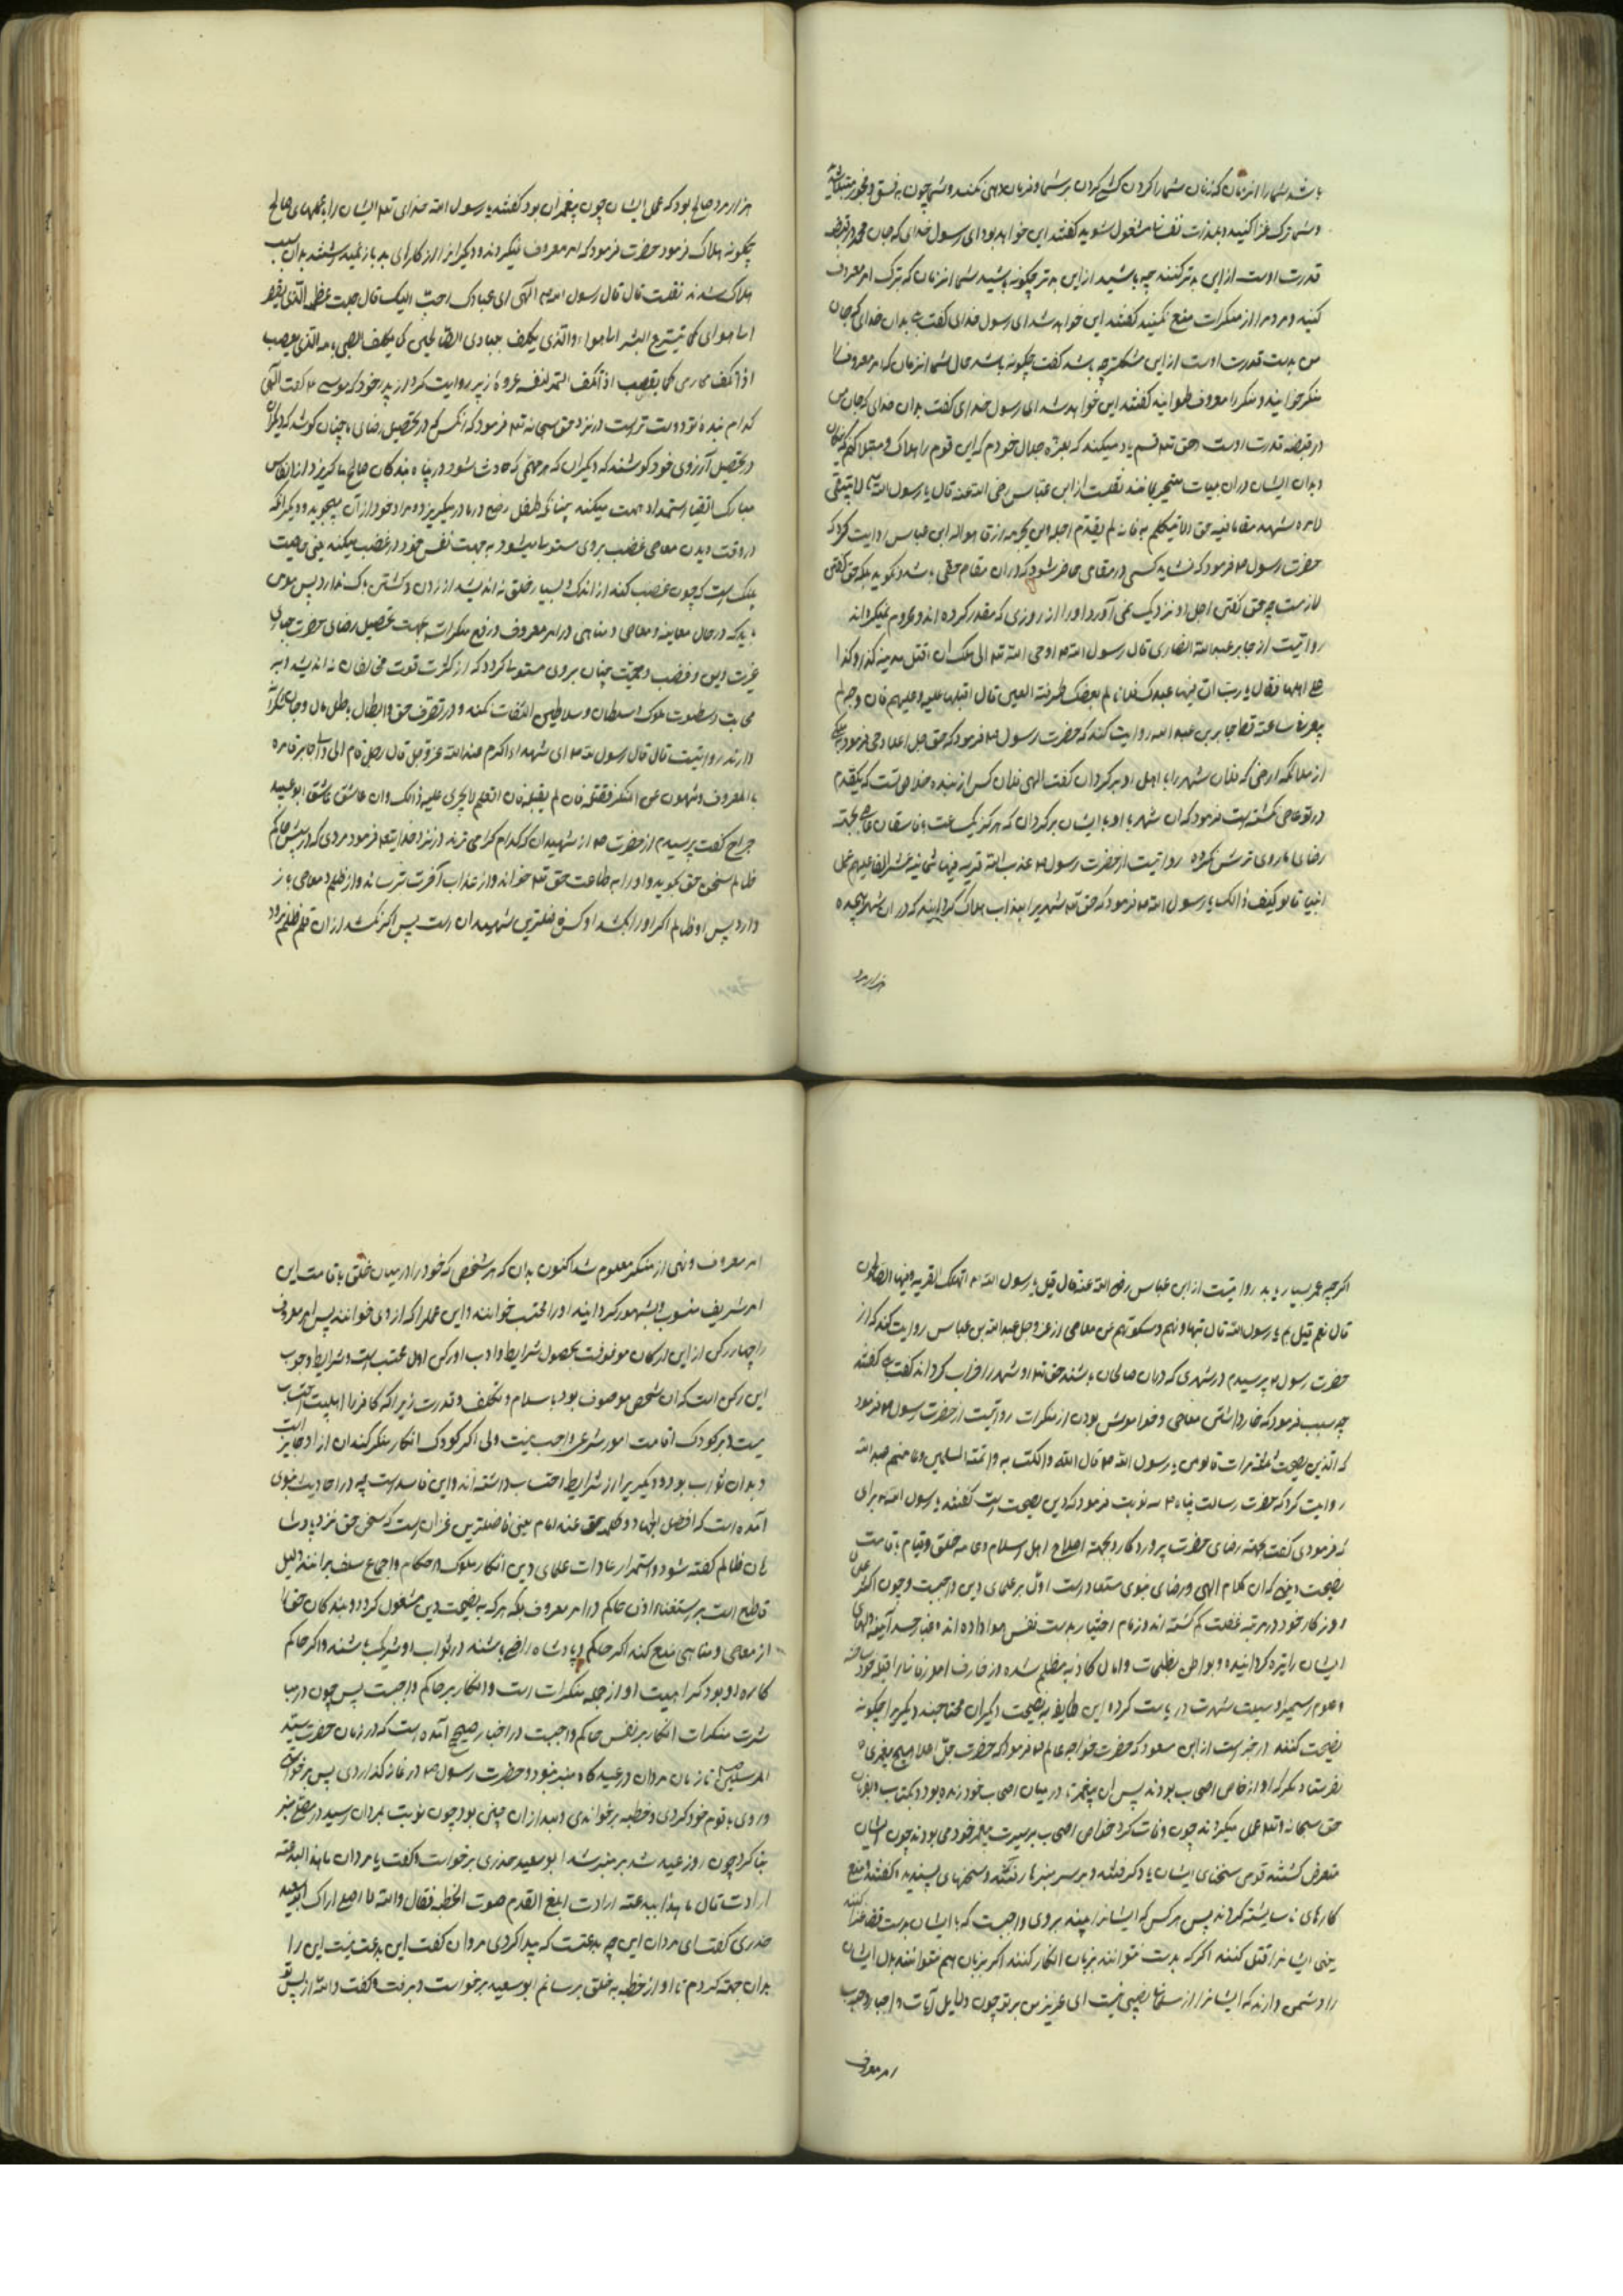 باشد شما را انزمان که زنان شما را کردن کشی کردن بر شما و فرمان دهی نکنند و شما چون به فسق و فجور مبتلا شده
و شما ترک غزا کنید و بلذت نفسانی مشغول شوید کفتند این خواهد بود ای رسول خدای که جان محمد در قبضه
قدرت اوست از این بدتر کنند چه باشید از این بدتر چکونه باشید شما انزمان که ترک امر معروف
کنید و مردم را از منکرات منع نکنید کفتند این خواهد شد ای رسول خدای کفت بدان خدای که جان
من بدست قدرت اوست از این مشکلتر چه باشد کفت چکونه باشد حال شما انزمان که امر معروف را
منکر خوانید و منکر را معروف خوانید کفتند این خواهد شد ای رسول خدای کفت بدان خدای که جان من
در قبضه قدرت اوست حق تعه قسم یاد میکند که بعزة جلال خودم که این قوم را هلاک و مبتلا کنم که
بدان ایشان در ان بلیات متحیر بمانند نقلست از ابن عباس رضی الله عنه قال یا رسول الله لا ینبغی
لامرء شهد مقاما فیه حق الا تیکلم به فانه لم یقدم اجله ولن یحرمه ارزقا هو له ابن عباس روایت کرد که
حضرت رسول م فرمود که نشاید کسی در مقامی حاضر شود که در ان مقام حقی باشد و نکوید بلکه حق کفتن
لازمست چه حق کفتن اجل او نزدیک نمی آورد و او را از روزی که مقدر کرده اند محروم نمیکرداند
روایتست از جابر عبد الله انصاری قال رسول الله م اوحی الله تعه الی ملک ان اقلب مدینه کذا و کذا
علی اهلها فقال یا رب ان فیها عبدک فلانا لم یعصک طرفة العین قال اقلبها علیه و علیهم فان وجهه لم
یتمعر ساعة قط جابر بن عبد الله روایت کند که حضرت رسول م فرمود که حق جل اعلا وحی فرمود بملکی
از ملائکه ارضی که فلان شهر را باهل او برکردان کفت الهی فلان کس از بنده خاص تست که یکقدم
در تو عاصی نکشته است فرمود که ان شهر با او با ایشان برکردان که هرکز یک ساعت با فاسقان بجهته
رضای ما روی ترش نکرده روایتست از حضرت رسول م عذب الله قریه فیها ثمانیه عشر الفا عملهم عمل
انبیا قالو کیف ذالک یا رسول الله م فرمود که حق تعه شهریرا بعذاب هلاک کردانید که در ان شهر هیجده
هزار مرد
هزار مرد صالح بود که عمل ایشان چون پیغمبران بود کفتند یا رسول الله خدای تعه ایشان را با عملهای صالح
چکونه هلاک فرمود حضرت فرمود که امر معروف نمیکردند و دیکرانرا از کارای بد باز نمیداشتند بدان سبب
هلاک شدند نقلست قال قال رسول الله م الهی ای عبادک احب الیک قال
کدام بنده تو دوست تر است در نزد حق سبحانه تعه فرمود که انکس که در تحصیل رضای ما چنان کوشد که دیکران
در تحصیل آرزوی خود کوشند که دیکران که هر مهمی که حادث شود در پناه بندکان صالح ما کریزد و از انفاس
مبارک اتقیا استمداد همت میکند چنانکه طفل رضیع در مادر میکریزد و مراد خود از آن میجوید و دیکر انکه
در وقت دیدن معاصی غضب بر وی مستولی میشود به جهت نفس خود در غضب میکند یعنی خاصیت
پلنک است که چون غضب کند از اندک و بسیار خلق نه اندیشد از زدن و کشتن باک ندارد پس مومن
باید که در حال معاینه و معاصی و مناهی در امر معروف و رفع منکرات بجهت تحصیل رضای حضرت جبار
غیرت دین و غضب و حمیت چنان بر وی مستولی کردد که از کثرت قوت مخالفان نه اندیشد و به
مهابت و سطوت ملوک و سلطان و سلاطین التفات نکند و در تصرف حق و ابطال باطل مال و جان
دارند روایتست قال قال رسول الله م ای شهداء اکرم عند الله عز و جل قال رجل قام الی وال جابر فامره
بالمعروف و نهوی عن المنکر فقتله فان لم یقتله فان القلم لا یجری علیه ذالک وان عاش ما عاش ابو عبیده
جراح کفت پرسیدم از حضرت م از شهیدان که کدام کرامی ترند در نزد خدایتعه فرمود مردی که در پیش حاکم
ظالم سخن حق بکوید و او را به طاعت حق تعه خواند و از عذاب آخرت ترساند و از ظلم و معاصی باز
دارد پس او ظالم اکر او را بکشد او کس فاضلترین شهیدان است پس اکر نکشد از ان قلم نرود
اکر چه عمر بسیار یابد روایتست از ابن عباس رضی الله عنه قال قیل یا رسول الله م اتهلک القریه و فیها الصالحون
قال نعم قیل بم یا رسول الله قال تبهاونهم و سکوتهم عن معاصی از عز و جل عبد الله بن عباس روایت کند که از
حضرت رسول م پرسیدم در شهری که در ان صالحان باشند حق تعه او شهر را خراب کرداند کفت بلی کفتند
چه سبب فرمود که خار داشتن معاصی و خواموش بودن از منکرات روایتست از حضرت رسول م فرمود
که الدین نصیحت ثلثه مرات قالو لمن یا رسول الله م قال لله و الکتب به و ائمة المسلمین و عامتهم عبد الله
روایت کرد که حضرت رسالت پناه م سه نوبت فرمود که دین نصیحت است کفتند یا رسول الله م برای
که فرمودی کفت بجهته رضای حضرت پروردکار و بجهته اصلاح اهل اسلام و عامه خلق و قیام باقامت
نصیحت دینی که ان کلام الهی و رضای نبوی مستفاد است اول بر علمای دین واجبست و چون اکثر علمای
روزکار خود در مرتبه غفلت کم کشته اند و زمام اختیار بدست نفس هوا داده اند و غبار حسد آینه دلهای
ایشان را تیره کردانیده و بواطن بظلمت و امال کاذبه مظلم شده و زخارف امور فانیرا قبله خود ساخته
نصیحت کنند در خبر است از ابن مسعود که حضرت خواجه عالم م فرمود که حضرت جل اعلا هیچ پیغمبری
نفرستاد مکر که او از خاص اصحاب بودند پس ان پیغمبر تا در میان اصحاب خود زنده بود و بکتاب و بفرمان
حق سبحانه و تعه عمل میکردند چون وفات کرد خواص اصحاب بر سیرت پیغمبر خود می بودند چون ایشان
منقرض کشتند قومی سخنهای ایشان یاد کرفتند و بر سر منبرها رفتند و سخنهای پسندیده کفتند و منع
کارهای ناشایسته کردند پس هر کس که ایشانرا بیند بر وی واجبست که با ایشان بدست غزا کنند
یعنی ایشانرا قتل کنند اکر که بدست نتوانند بزبان انکار کنند اکر بزبان هم نتوانند بدل ایشان
را دشمن دارند که ایشانرا از مسلمانی نصیبی نیست ای عزیز من بر تو چون دلایل آیات و اخبار وجوب
امر معروف
امر معروف و نهی از منکر معلوم شد اکنون بدان که هر شخص که خود را در میان خلق باقامت این
امر شریف منسوب و مشهور کردانید او را محتسب خوانند و این عمل را که از وی خوانند پس امر معروف
را چهار رکن از این ارکان موقوفست بحصول شرایط و ادب او رکن اول محتسب است و شرایط وجوب
این رکن است که ان شخص موصوف بود باسلام و تکلف و قدرت زیرا که کافر را اهلیت احتساب
نیست و بر کودک اقامت امور شرعی واجب نیست ولی اکر کودک انکار منکر کند ان از او جایز است
و بدان ثواب بود و دیکر را از شرایط احتساب داشته اند و این فاسد است چه در احادیث نبوی
آمده است که افضل الجهاد کلمه حق عند امام یعنی فاضلترین غزا ان است که سخن حق نزد پادشا
هان ظالم کفته شود و استمرار عادات علمای دین انکار ملوک و حکام و اجماع سلف بر انند دلیل
قاطع است بر استغناء اذن حاکم در امر معروف بلکه هر که به نصیحت دین مشغول کردد و بندکان حق را
از معاصی و مناهی منع کند اکر حاکم و پادشاه راضی باشند در ثواب او شریک باشند و اکر حاکم
کاره او بود کراهیت او از جمله منکرات است و انکار بر حاکم واجبست پس چون در مبا
شرت منکرات انکار بر نفس حاکم واجبست در اخبار صحیح آمده است که در زمان حضرت سید
المرسلین تا زمان مروان در عیدکاه منبر نبود و حضرت رسول م در نماز کذاردی پس بر خواستی
و روی با قوم خود کردی و خطبه بر خواندی و بعد از ان چنین بود چون نوبت بمروان رسید در مصلی منبر
بنا کرد چون روز عید شد بر منبر شد ابو سعید خدری برخواست و کفت یا مروان ما هذا البدعته
ارادت قال ما بهذا ببدعته ارادت ابلغ القدم صوت الخطبه فقال والله لا اصلی اراک ابو سعید
خدری کفت ای مروان این چه بدعتست که پیدا کردی مروان کفت این بدعت نیست این را
بدان جهته کردم تا اواز خطبه به خلق برسانم ابو سعید برخواست و برفت و کفت والله از پس تو